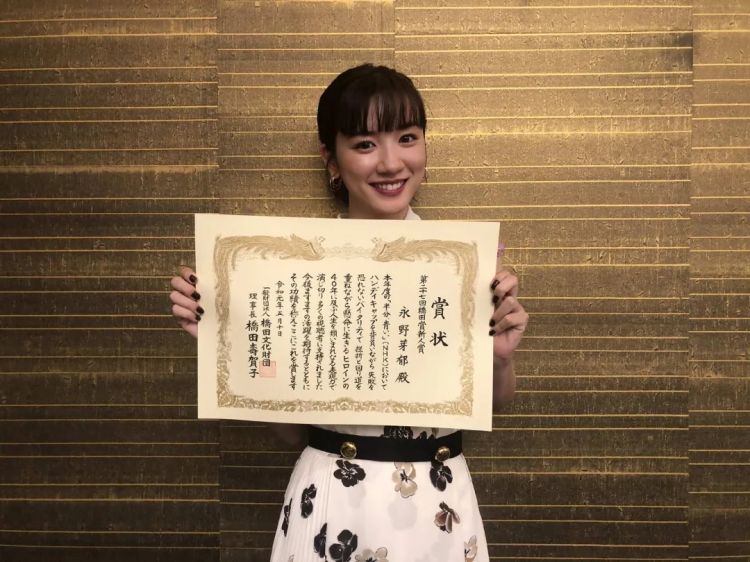 賞状
第二十七回橋田賞新人賞
永野芽郁殿
本年度の、「半分、青い。」(NHK)において
ハンディキャップを背負いながら失敗を
恐れないバイタリティで挫折と回り道を
重ねながら懸命に生きるヒロインの
40年に及ぶ人生を類いまれなる表現力で
演じ切り多くの視聴者に支持されました
今後ますますの活躍を期待するとともに
その功績を称えここにこれを賞します
令和元年五月十日
一般財団法人橋田文化財団
理事長橋田壽賀子